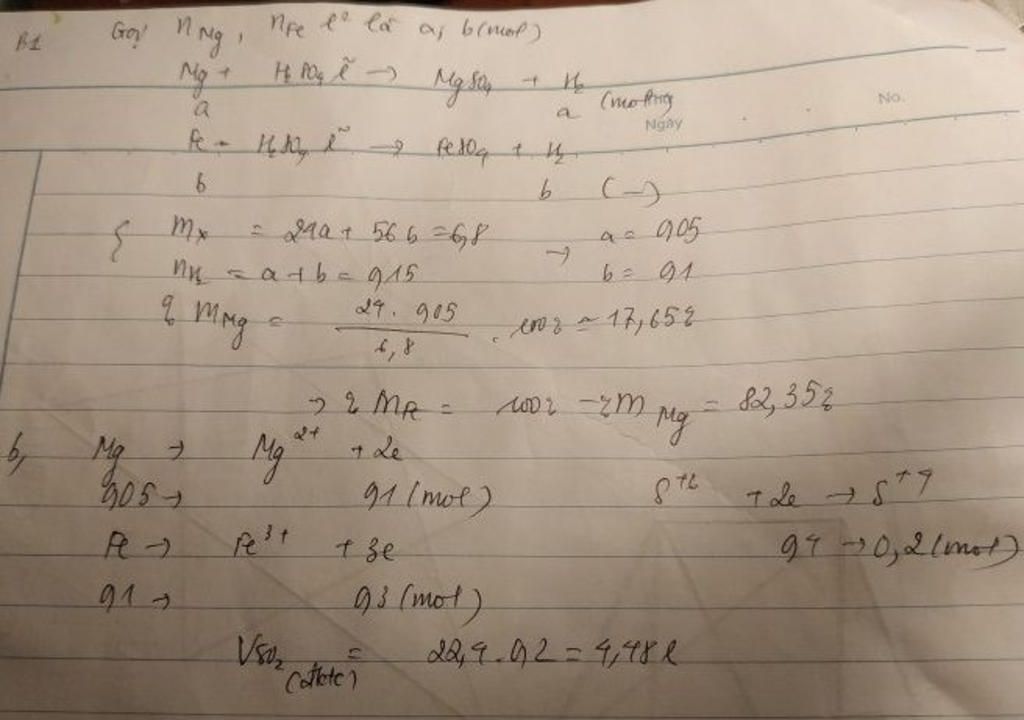 B1 Gọi nMg, nFe l² là a, b (mol)
Mg + H₂SO₄ l̃ → MgSO₄ + H₂
a a (mol)
No.
Ngày
Fe + H₂SO₄ l̃ → FeSO₄ + H₂
b b (—)
{ mx = 24a + 56b = 6,8 → a = 0,05
nH₂ = a + b = 0,15 b = 0,1
% mMg = 24 . 0,05 / 6,8 . 100% ≈ 17,65%
→ % mFe = 100% - % mMg = 82,35%
b, Mg → Mg²⁺ + 2e
0,05 → 0,1 (mol) S⁺⁶ + 2e → S⁺⁴
Fe → Fe³⁺ + 3e 0,4 → 0,2 (mol)
0,1 → 0,3 (mol)
VSO₂ (đktc) = 22,4 . 0,2 = 4,48 l